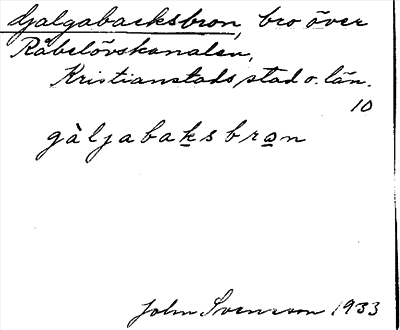 Galgabacksbron, bro över
Råbelövskanalen,
Kristianstads stad o. län.
10
gàljabaksbron
John Svensson 1933